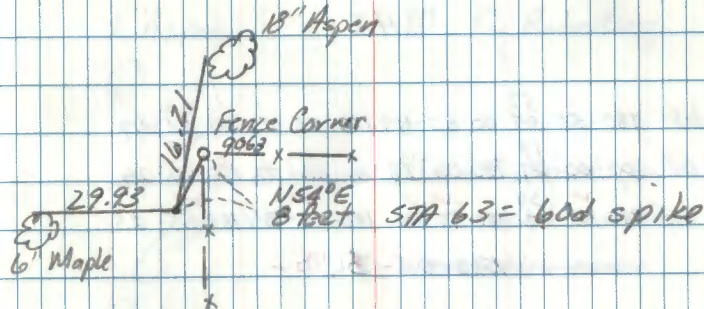 18" Aspen
16.21
Fence Corner
9063
29.93
N54°E
STA 63 = 60d spike
6" Maple